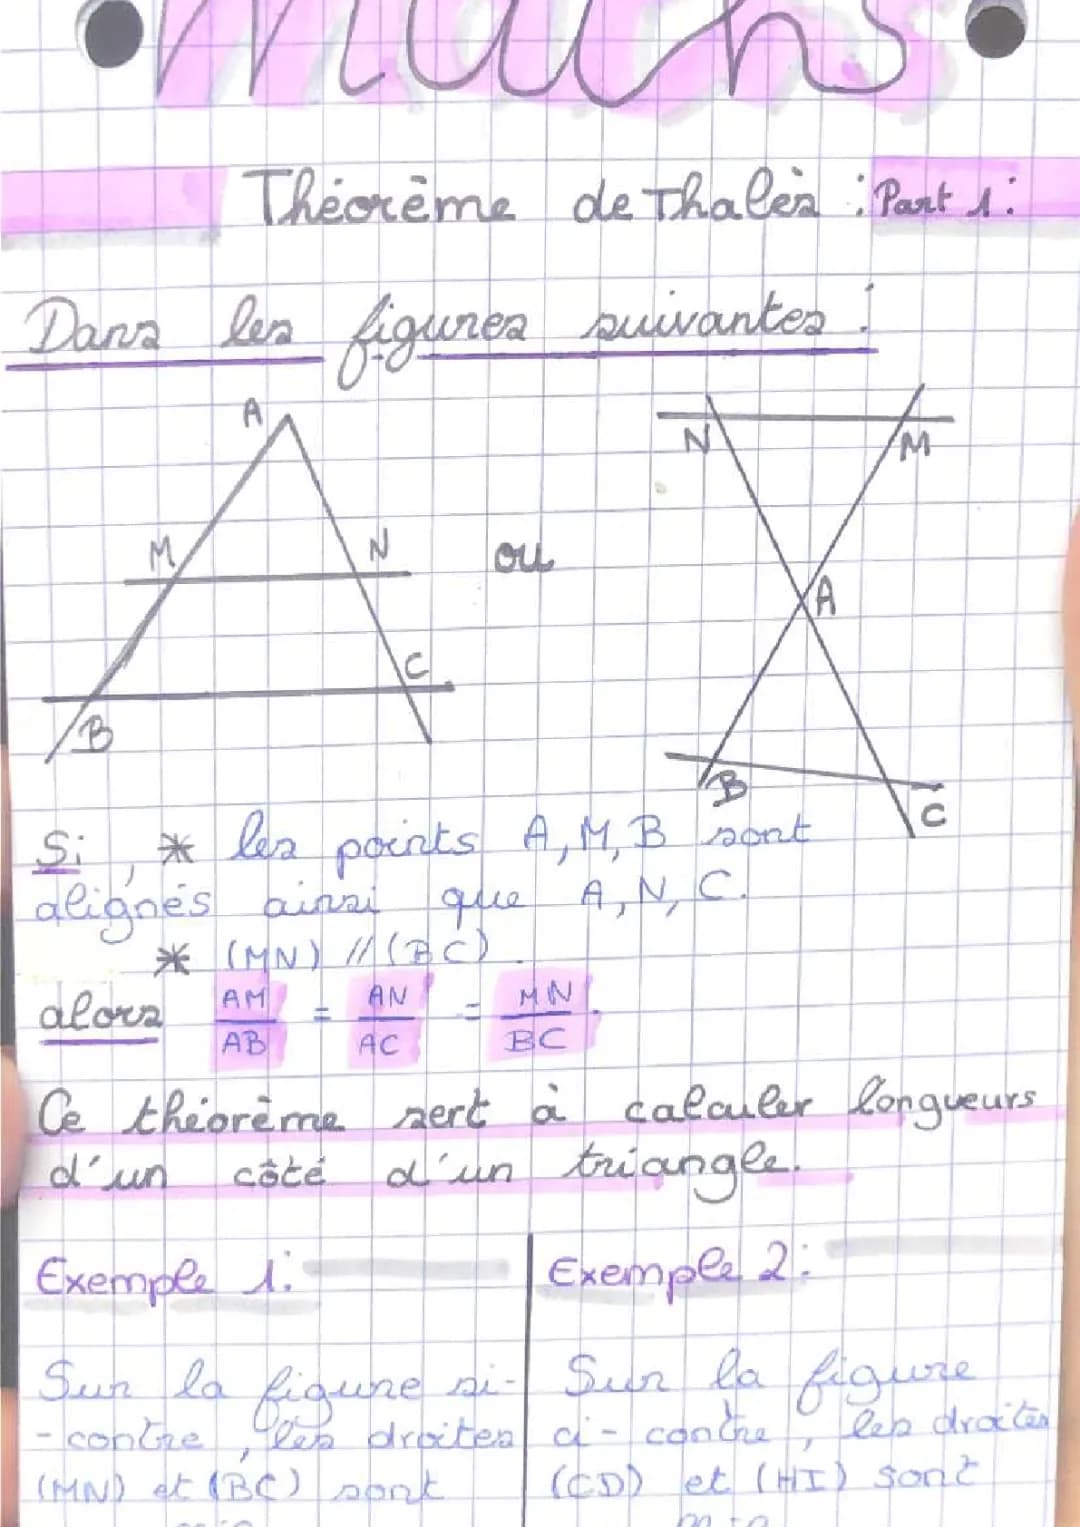 Maths
Théorème de Thalès : Part 1 :
Dans les figures suivantes :
A
M N
C
B
ou
N M
A
B
C
Si, * les points A, M, B sont
alignés ainsi que A, N, C.
* (MN) // (BC).
alors AM/AB = AN/AC = MN/BC.
Ce théorème sert à calculer longueurs
d'un côté d'un triangle.
Exemple 1:
Sur la figure si-
-contre, les droites
(MN) et (BC) sont
Exemple 2:
Sur la figure
ci-contre, les droites
(CD) et (HI) sont